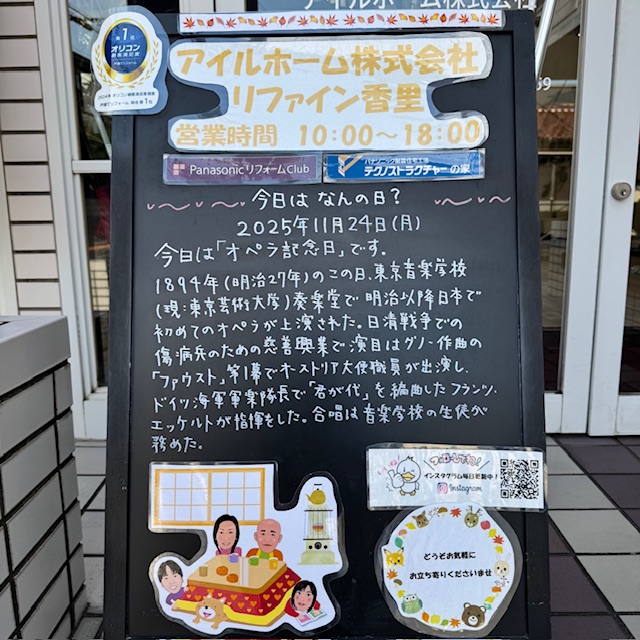 アイルホーム株式会社
第1位
オリコン
顧客満足度
2024年 オリコン顧客満足度調査
戸建てリフォーム 総合第1位
アイルホーム株式会社
リファイン香里
営業時間 10:00〜18:00
Panasonic リフォームClub
パナソニック耐震住宅工法
テクノストラクチャーの家
今日は なんの日?
2025年11月24日(月)
今日は「オペラ記念日」です。
1894年(明治27年)のこの日、東京音楽学校
(現:東京芸術大学)奏楽堂で 明治以降日本で
初めてのオペラが上演された。日清戦争での
傷病兵のための慈善興業で演目はグノー作曲の
「ファウスト」第1幕でオーストリア大使職員が出演し、
ドイツ海軍軍楽隊長で「君が代」を編曲したフランツ・
エッケルトが指揮をした。合唱は音楽学校の生徒が
務めた。
フォローしてね!
インスタグラム毎日更新中!
Instagram
どうぞお気軽に
お立ち寄りくださいませ